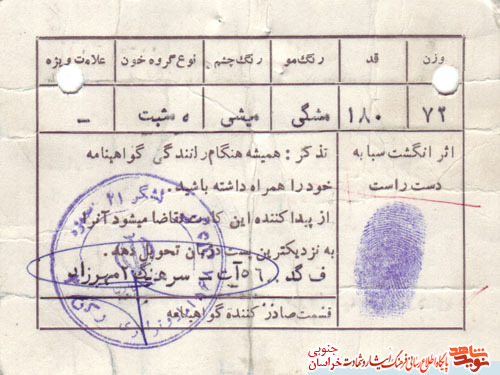 وزن	قد	رنگ مو	رنگ چشم	نوع گروه خون	علامت ویژه
۷۲	۱۸۰	مشگی	میشی	o مثبت	-
اثر انگشت سبابه
دست راست
تذکر: همیشه هنگام رانندگی گواهینامه
خود را همراه داشته باشید.
از پیدا کننده این کارت تقاضا میشود آنرا
به نزدیکترین پست دژبان تحویل دهد.
ف گد سرهنگ
قسمت صادر کننده گواهینامه
لشگر ۲۱
نوید شاهد
پایگاه اطلاع رسانی فرهنگ ایثار و شهادت
خراسان جنوبی